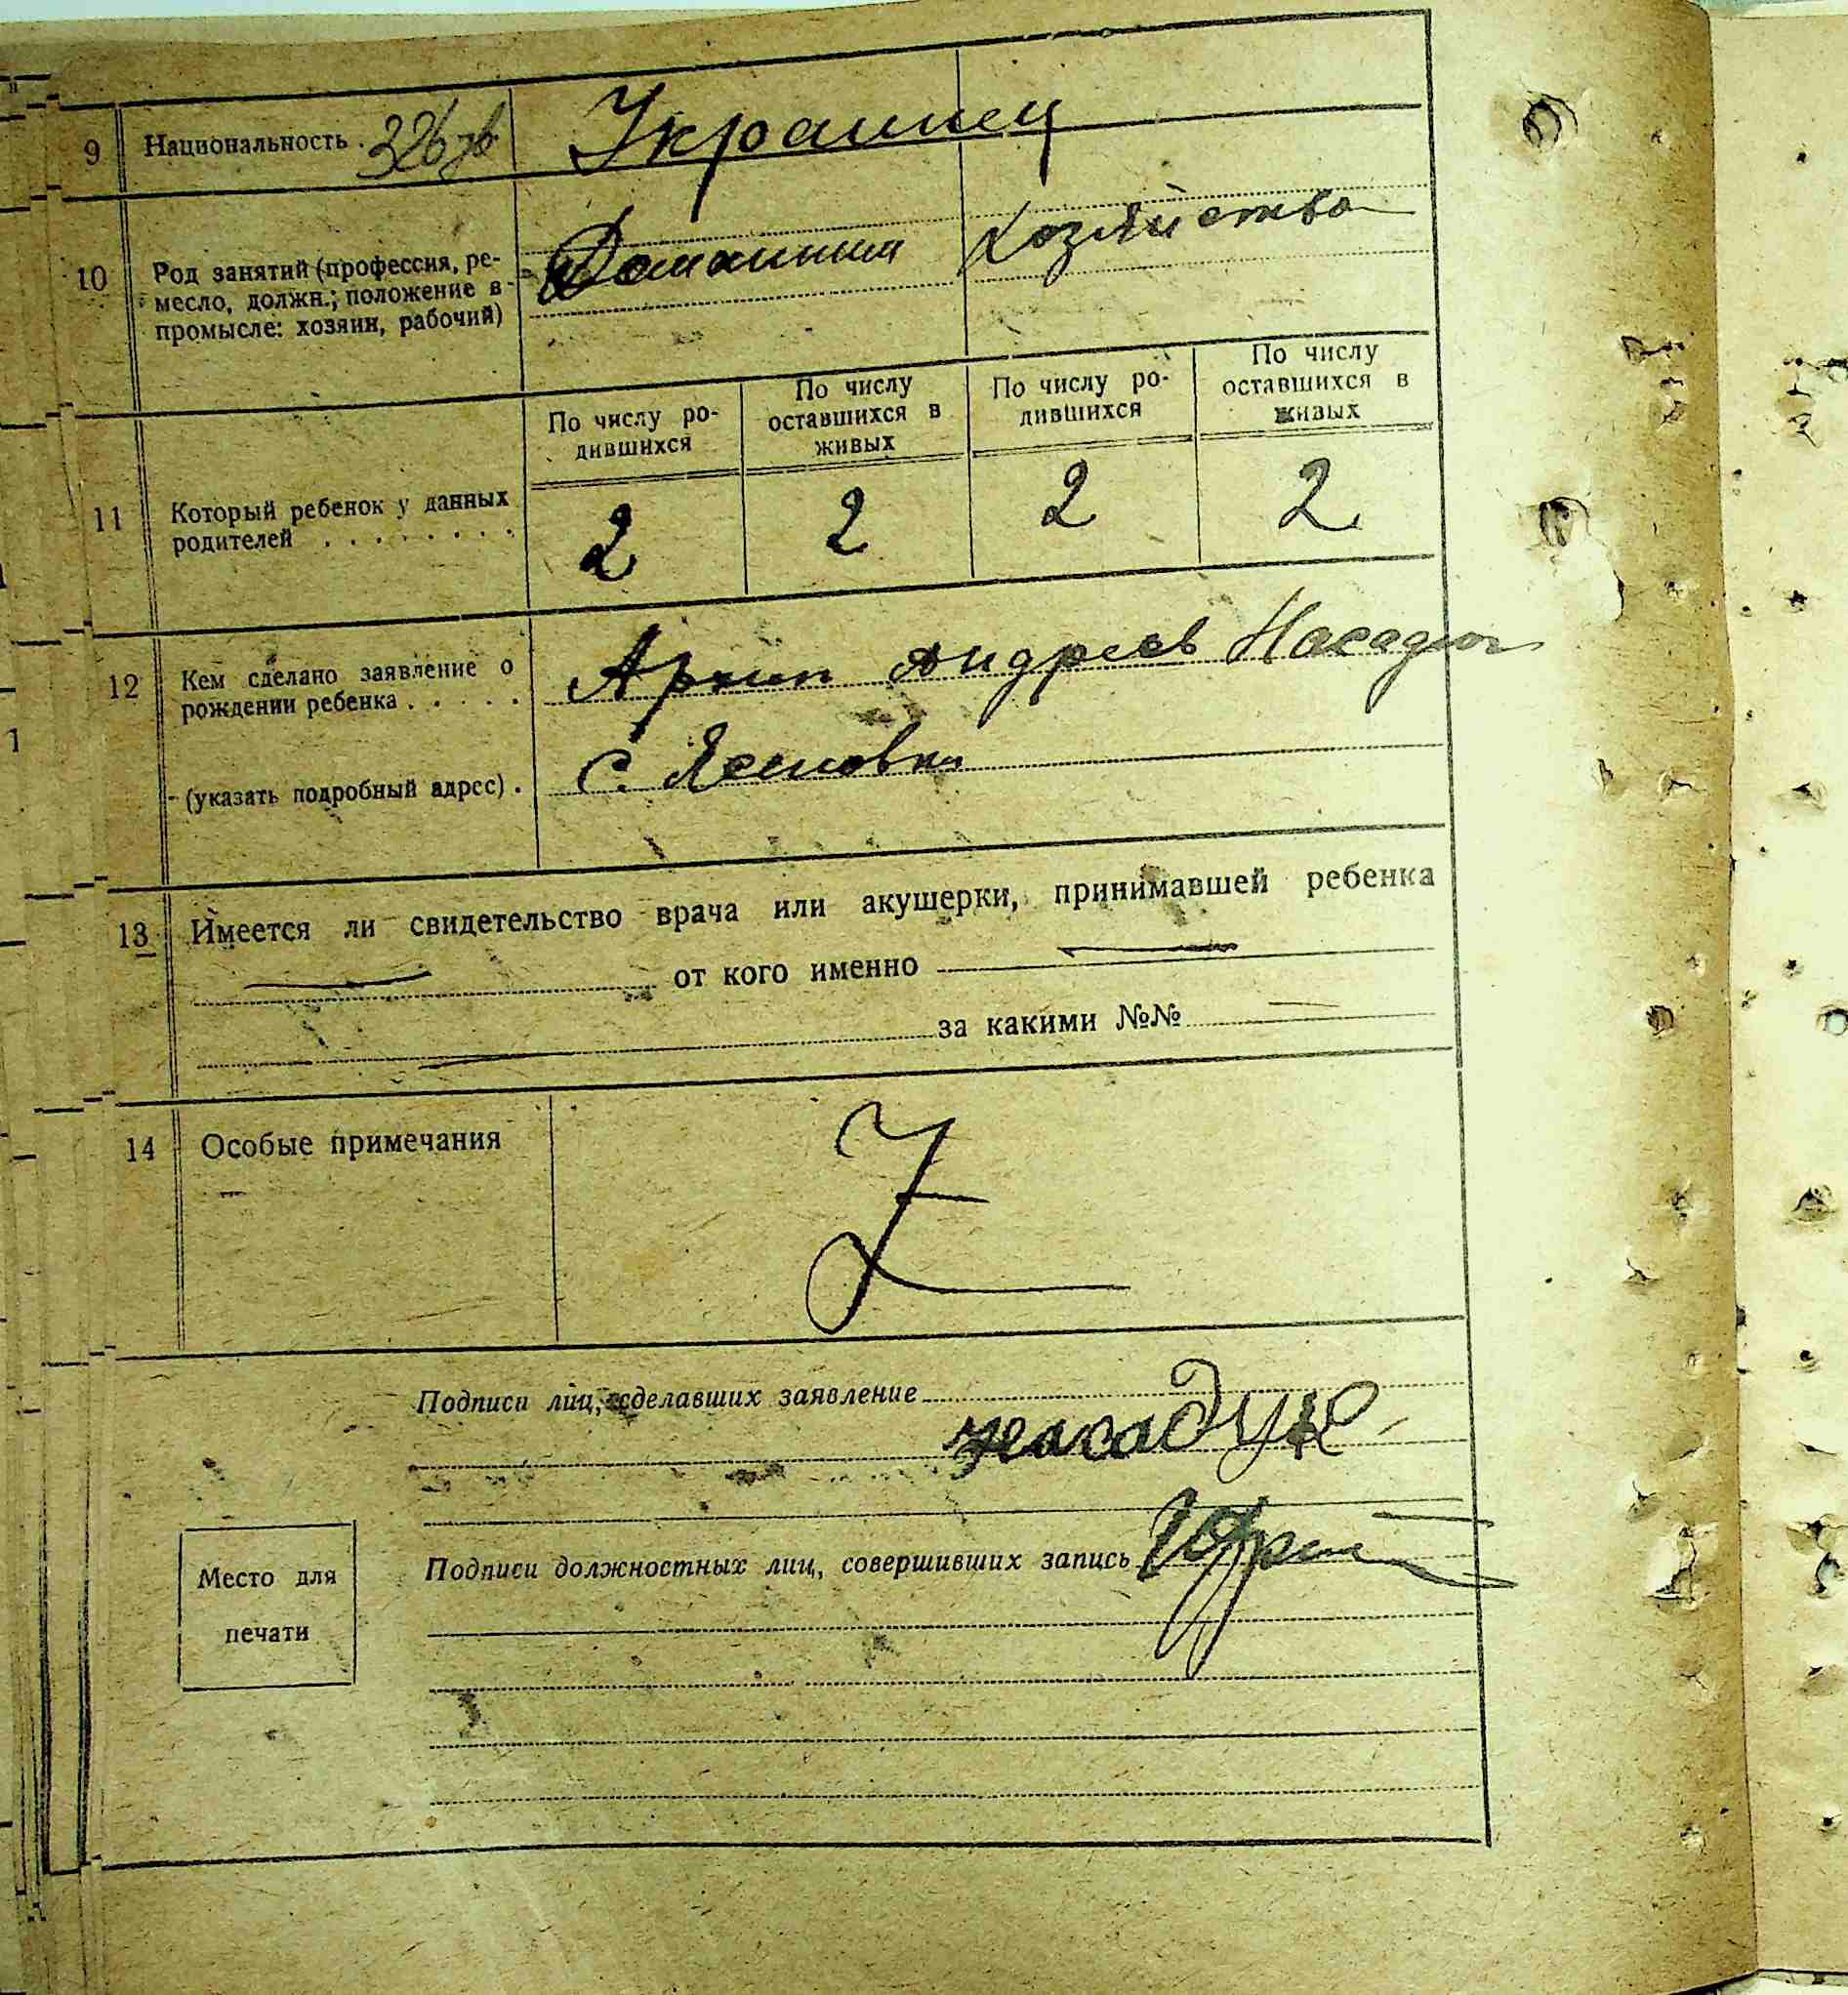 9 Национальность . Украинец
10 Род занятий (профессия, ре-
месло, должн.; положение в
промысле: хозяин, рабочий)
Домашнии Хозяйство
По числу ро-
дившихся
По числу
оставшихся в
живых
По числу ро-
дившихся
По числу
оставшихся в
живых
11 Который ребенок у данных
родителей . . . . . . . .
2 2 2 2
12 Кем сделано заявление о
рождении ребенка . . . . .
Архип Андреев Насадюк
(указать подробный адрес) .
С. Ясиновка
13 Имеется ли свидетельство врача или акушерки, принимавшей ребенка
от кого именно
за какими №№
14 Особые примечания
Z
Подписи лиц, сделавших заявление
насадук
Подписи должностных лиц, совершивших запись
Место для
печати